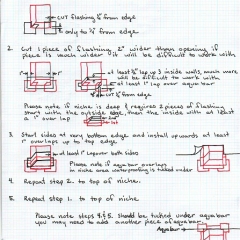 cut flashing 1/8" from edge
only to 1/8" from edge
2. Cut 1 piece of flashing 2" wider than opening if
piece is much wider it will be difficult to work with.
1" 1"
at least 3/4" lap up 3 inside walls, much more
will be difficult to work with
at least 1" lap over aquabar
1/8" from edge
Please note if niche is deep & requires 2 pieces of flashing
start with the outside edge, then the inside with at least
a 1" over lap
3. Start sides at very bottom edge and install upwards at least
1" overlaps up to top edge.
at least 1" lap over both sides
Please note if aquabar overlaps
in niche area waterproofing is tucked under
4. Repeat step 2. to top of niche.
5. Repeat step 1. to top of niche.
Please note steps 4 & 5. should be tucked under aquabar
you may need to add another piece of aquabar
Aquabar